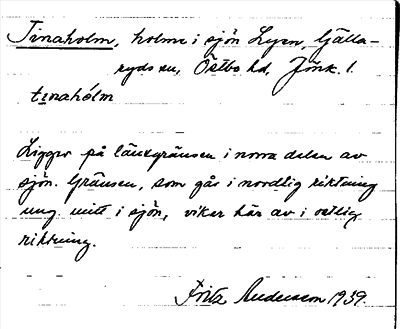 Tinaholm, holme i sjön Lyen, Gälla-
ryds sn, Östbo hd, Jönk. l.
tinahólm
Ligger på länsgränsen i norra delen av
sjön. Gränsen, som går i nordlig riktning
ung. mitt i sjön, viker här av i ostlig
riktning.
Fritz Andersson 1939.